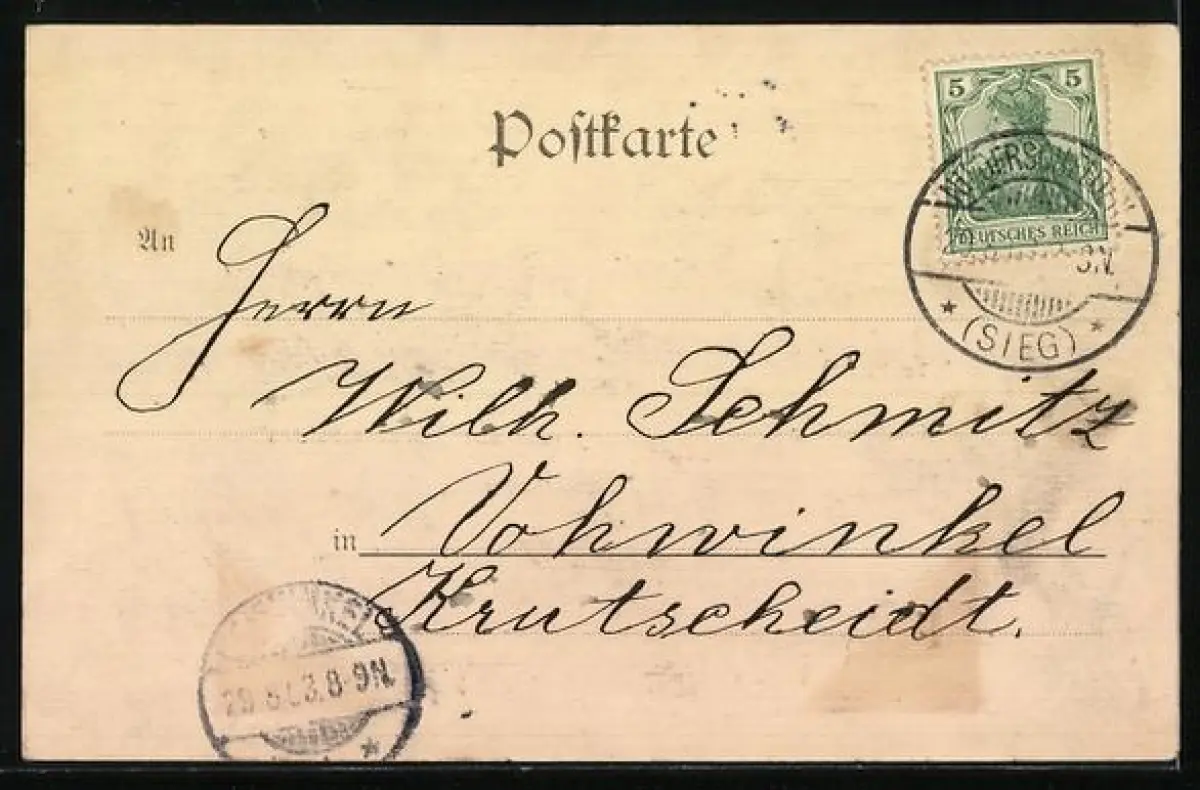 Postkarte
5 5
DEUTSCHES REICH
(SIEG)
An
Herrn
Wilh. Schmitz
in Vohwinkel
Krutscheidt.
8-9N